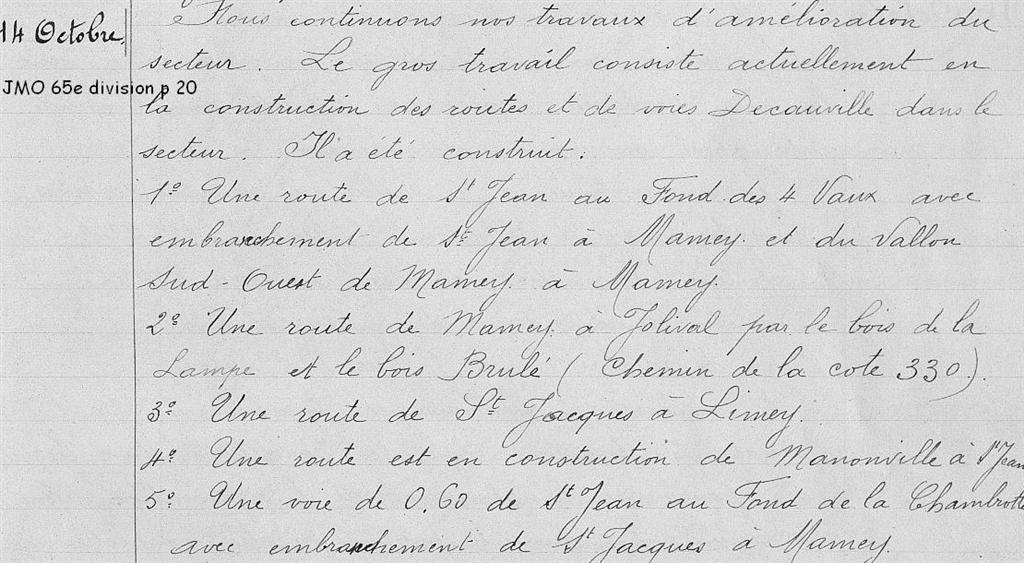 14 Octobre.
Nous continuons nos travaux d'amélioration du
secteur. Le gros travail consiste actuellement en
JMO 65e division p 20
la construction des routes et de voies Decauville dans le
secteur. Il a été construit :
1º Une route de St Jean au Fond des 4 Vaux avec
embranchement de St Jean à Mamey et du Vallon
Sud-Ouest de Mamey à Mamey.
2º Une route de Mamey à Jolival par le bois de la
Lampe et le bois Brulé (Chemin de la cote 330).
3º Une route de St Jacques à Limey.
4º Une route est en construction de Manonville à St Jean
5º Une voie de 0.60 de St Jean au Fond de la Chambrotte
avec embranchement de St Jacques à Mamey.